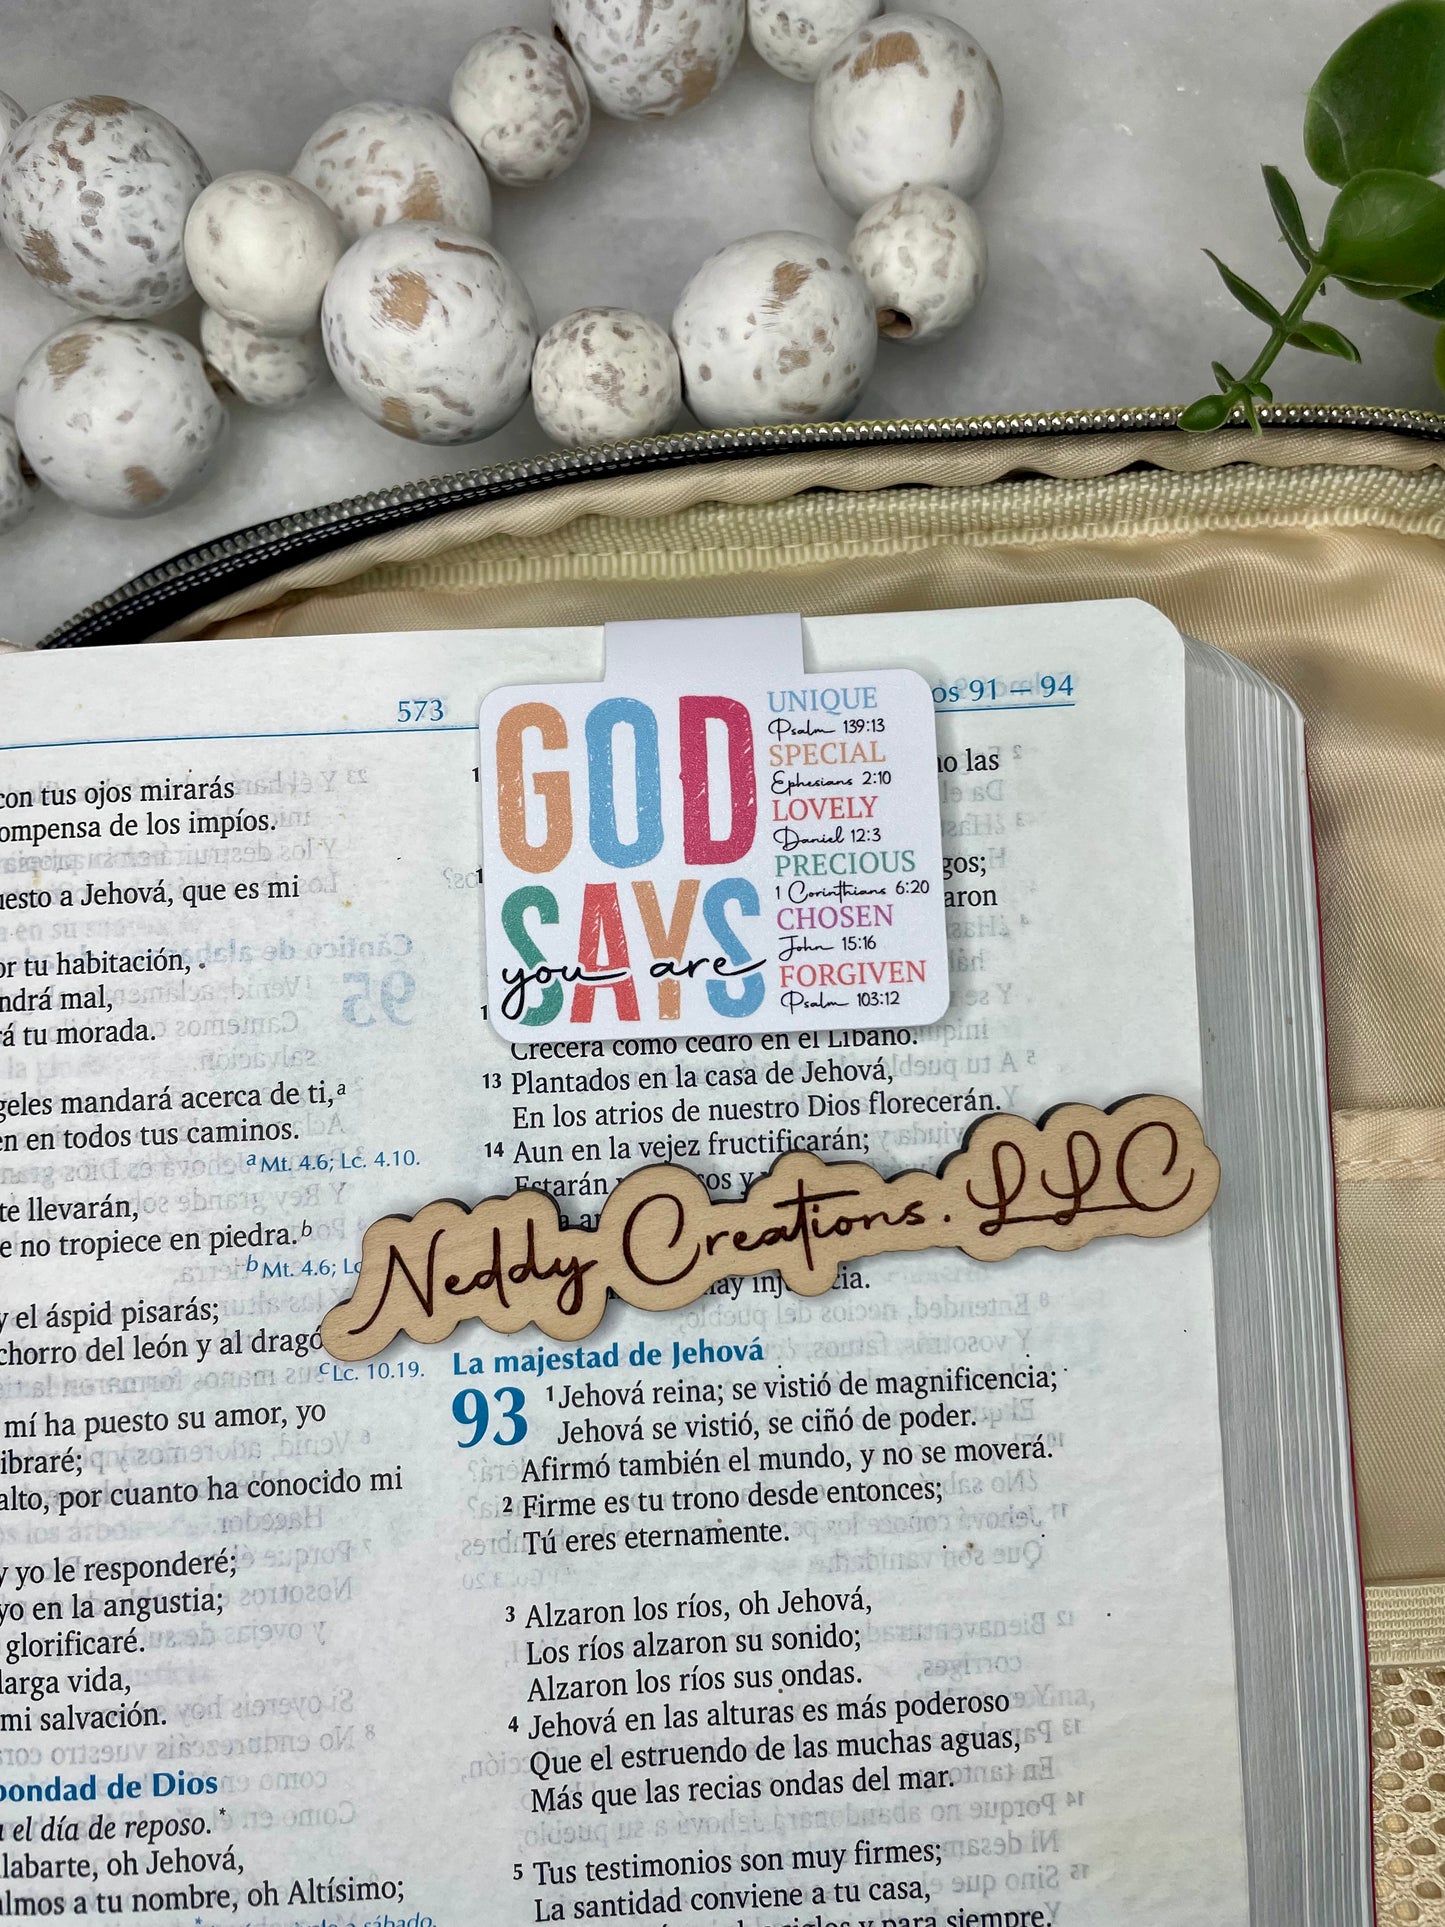 573
91 – 94
GOD
SAYS
you are
UNIQUE
Psalm 139:13
SPECIAL
Ephesians 2:10
LOVELY
Daniel 12:3
PRECIOUS
1 Corinthians 6:20
CHOSEN
John 15:16
FORGIVEN
Psalm 103:12
con tus ojos mirarás
de los impíos.
a Jehová, que es mi
tu habitación,
mal,
tu morada.
mandará acerca de ti,ᵃ
en todos tus caminos.
ᵃ Mt. 4.6; Lc. 4.10.
te llevarán,
no tropiece en piedra.ᵇ
ᵇ Mt. 4.6;
y el áspid pisarás;
del león y al
ᶜ Lc. 10.19.
mí ha puesto su amor, yo
alto, por cuanto ha conocido mi
y yo le responderé;
yo en la angustia;
glorificaré.
larga vida,
mi salvación.
de Dios
el día de reposo.*
oh Jehová,
a tu nombre, oh Altísimo;
las
Crecerá como cedro en el Líbano.
13 Plantados en la casa de Jehová,
En los atrios de nuestro Dios florecerán.
14 Aun en la vejez fructificarán;
Estarán
Neddy Creations. LLC
La majestad de Jehová
93
1 Jehová reina; se vistió de magnificencia;
Jehová se vistió, se ciñó de poder.
Afirmó también el mundo, y no se moverá.
2 Firme es tu trono desde entonces;
Tú eres eternamente.
3 Alzaron los ríos, oh Jehová,
Los ríos alzaron su sonido;
Alzaron los ríos sus ondas.
4 Jehová en las alturas es más poderoso
Que el estruendo de las muchas aguas,
Más que las recias ondas del mar.
5 Tus testimonios son muy firmes;
La santidad conviene a tu casa,
y para siempre.